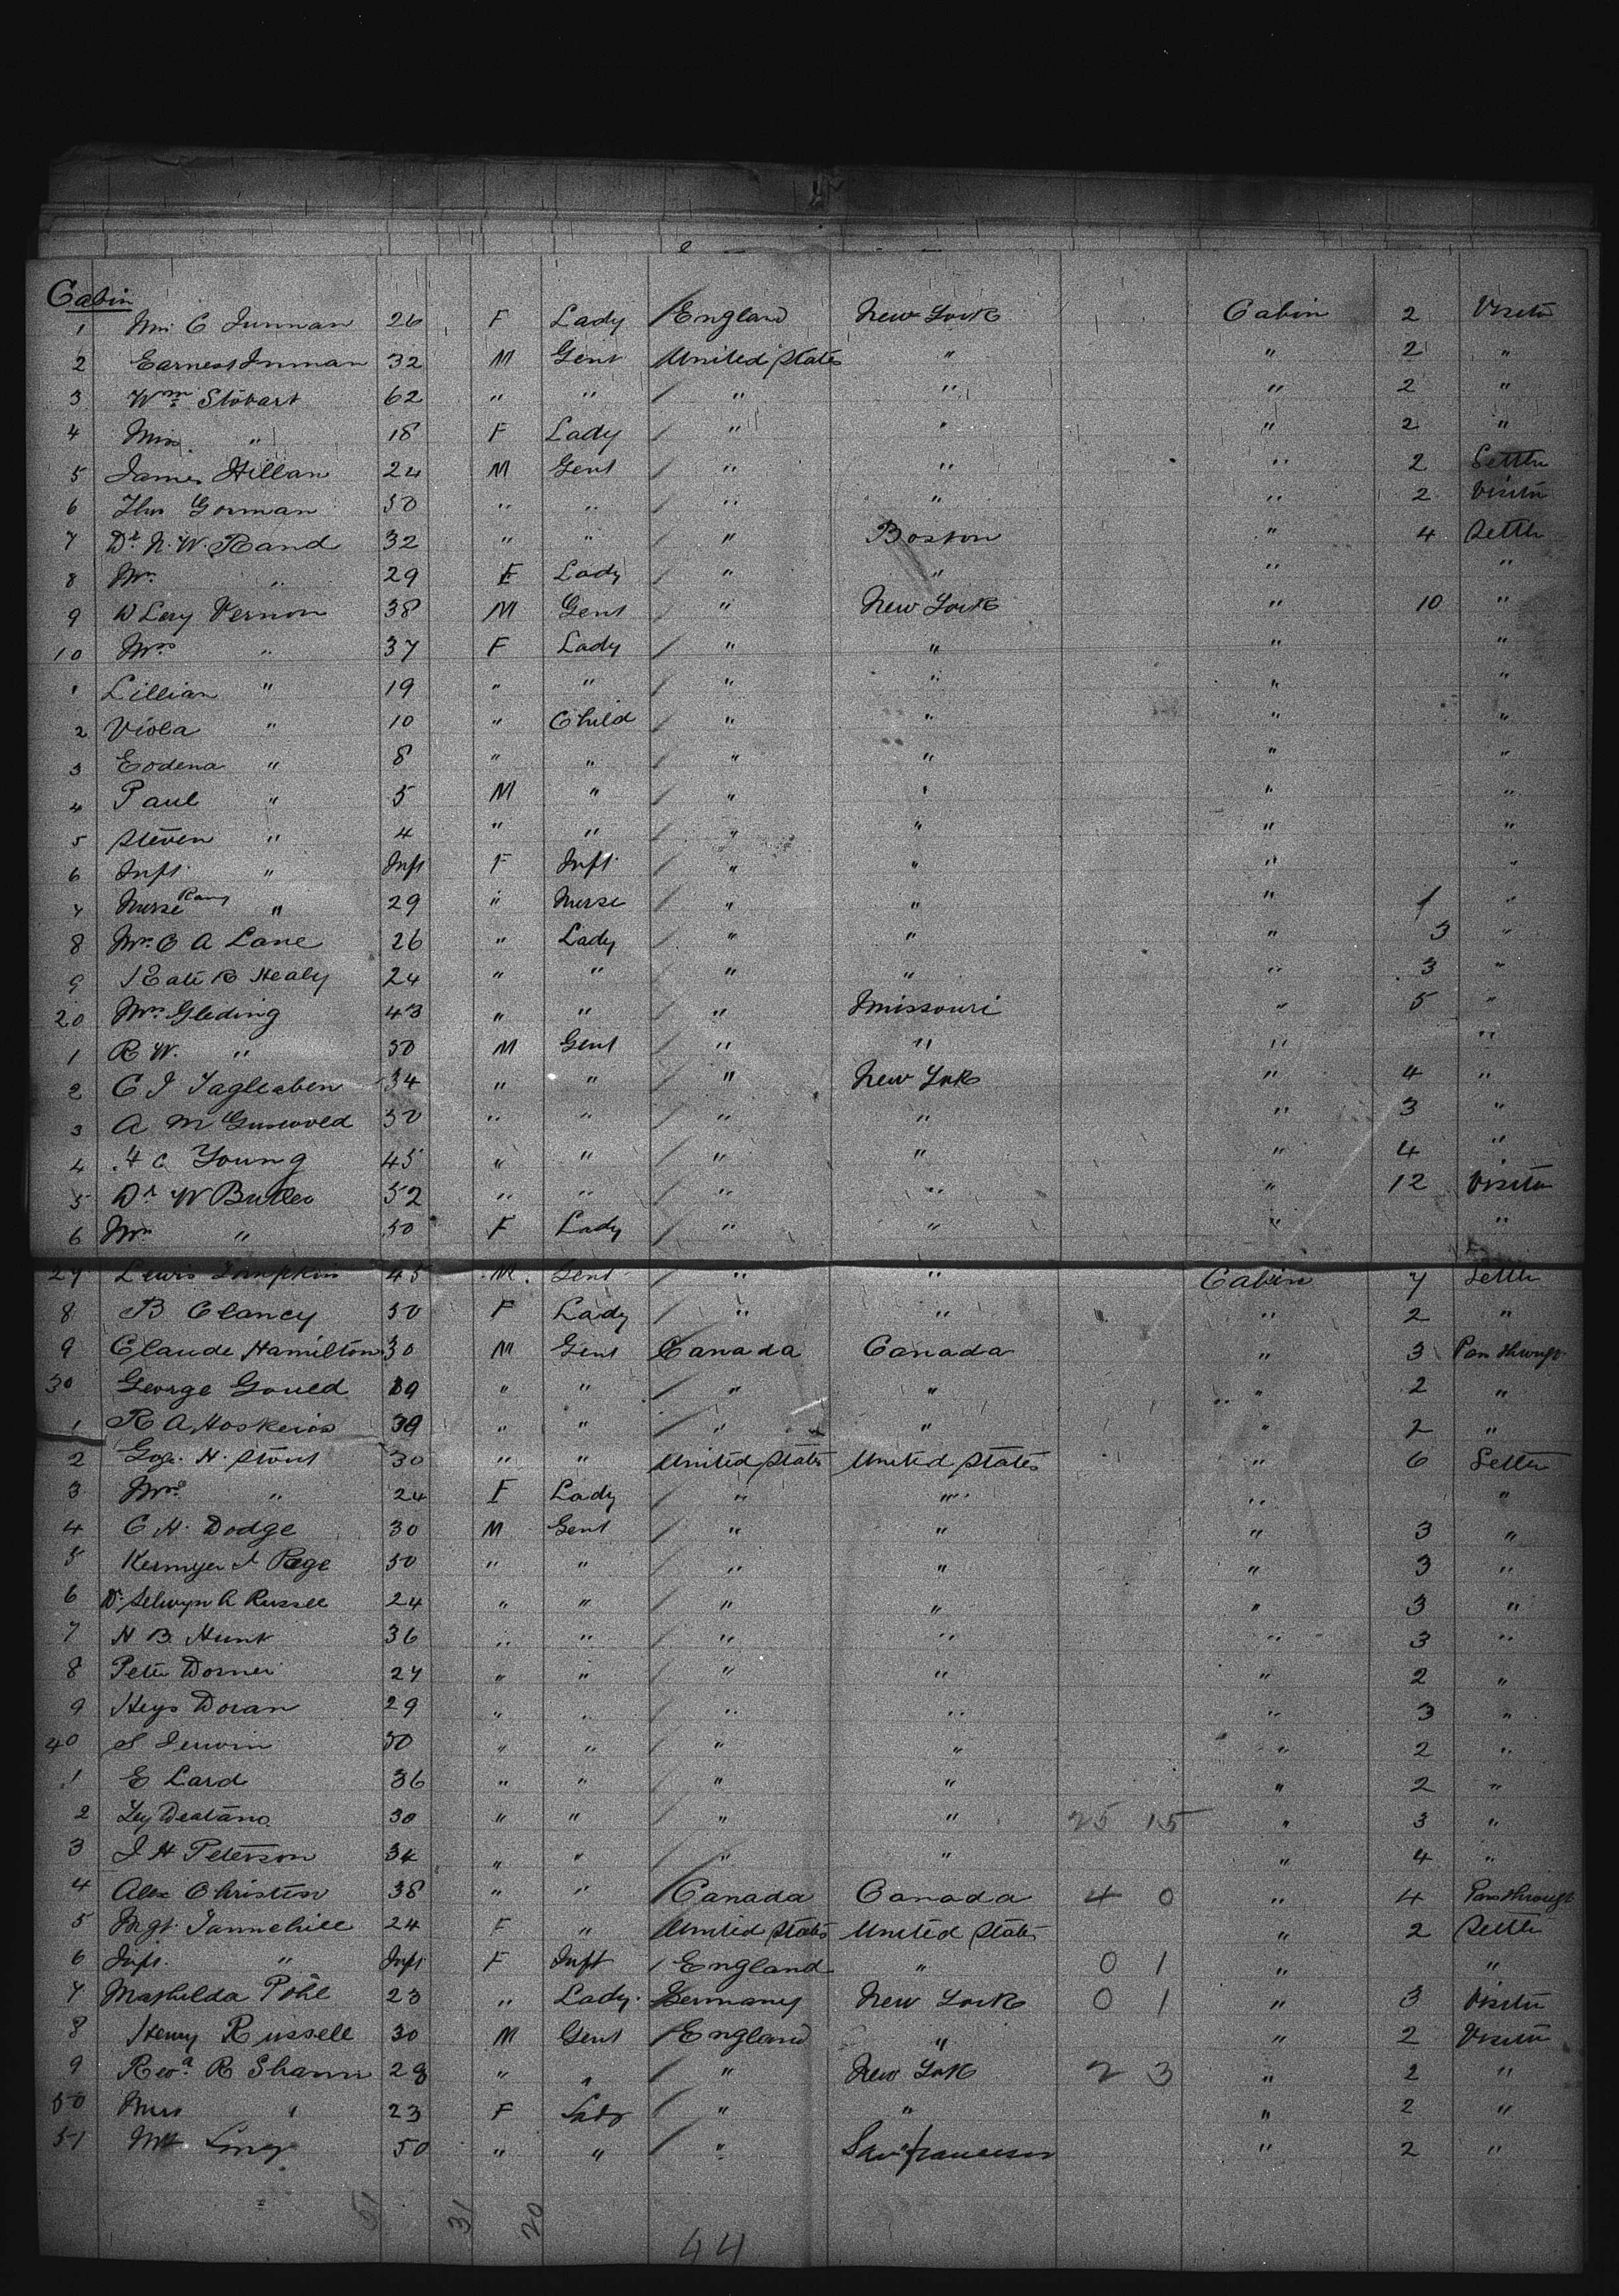 Cabin
1 C Innman 26 F Lady England New York Cabin 2 Visitor
2 Earnest Inman 32 M Gent United States " " 2 "
3 Wm Stobart 62 " " " " " 2 "
4 Miss " 18 F Lady " " " 2 "
5 James Hillan 24 M Gent " " " 2 Settler
6 Thos Gorman 50 " " " " " 2 Visitor
7 Dr N. W. Rand 32 " " " Boston " 4 Settler
8 Mrs " 29 F Lady " " " "
9 D Lery Vernon 38 M Gent " New York " 10 "
10 Mrs " 37 F Lady " " " "
1 Lillian " 19 " " " " " "
2 Viola " 10 " Child " " " "
3 Eodena " 8 " " " " " "
4 Paul " 5 M " " " " "
5 Steven " 4 " " " " " "
6 Inft. " Inft F Inft. " " " "
7 Nurse " 29 " Nurse " " " 1 "
8 Mrs C A Lane 26 " Lady " " " 3 "
9 Kate R Healy 24 " " " " " 3 "
20 Mrs Gleding 43 " " " Missouri " 5 "
1 R W. " 50 M Gent " " " "
2 C J Tagleaben 34 " " " New York " 4 "
3 A M Guswold 30 " " " " " 3 "
4 C Young 45 " " " " " 4 "
5 Dr W Butler 52 " " " " " 12 Visitor
6 Mrs " 50 F Lady " " " "
27 Lewis Tompkins 45 M. Gent " " Cabin 7 Settler
8 B Clancy 50 F Lady " " " 2 "
9 Claude Hamilton 30 M Gent Canada Canada " 3 Pass through
30 George Gould 19 " " " " " 2 "
1 R A Hoskins 39 " " " " " 2 "
2 Geo. H. Stout 30 " " United States United States " 6 Settler
3 Mrs " 24 F Lady " " " "
4 C H. Dodge 30 M Gent " " " 3 "
5 Page 50 " " " " " 3 "
6 Dr Selwyn A Russell 24 " " " " " 3 "
7 H B. Hunt 36 " " " " " 3 "
8 Peter Dorner 27 " " " " " 2 "
9 Heys Doran 29 " " " " " 3 "
40 S Irwin 50 " " " " " 2 "
1 E Lard 36 " " " " " 2 "
2 30 " " " " 25 15 " 3 "
3 J H Peterson 34 " " " " " 4 "
4 Alex Christin 38 " " Canada Canada 4 0 " 4 Pass through
5 Mgt. Tannehill 24 F " United States United States " 2 Settler
6 Inft. " Inft F Inft England " 0 1 " "
7 Mathilda Pohl 23 " Lady. Germany New York 0 1 " 3 Visitor
8 Henry Russell 30 M Gent England " " 2 Visitor
9 Revd. R Shann 28 " " " New York 2 3 " 2 "
50 Mrs " 23 F Lady " " " 2 "
51 50 " " " San Francisco " 2 "
51 31 20 44